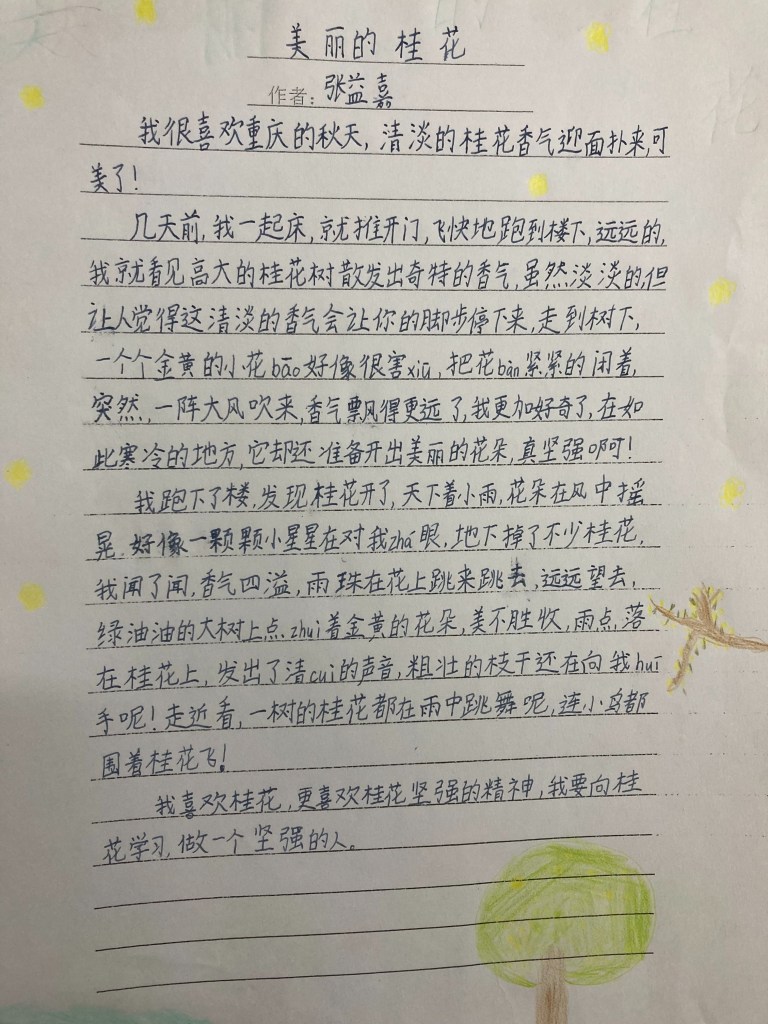 美丽的桂花
作者：张益嘉
我很喜欢重庆的秋天，清淡的桂花香气迎面扑来，可
美了！
几天前，我一起床，就推开门，飞快地跑到楼下，远远的，
我就看见高大的桂花树散发出奇特的香气，虽然淡淡的，但
让人觉得这清淡的香气会让你的脚步停下来，走到树下，
一个个金黄的小花bāo好像很害xiū，把花bàn紧紧的闭着，
突然，一阵大风吹来，香气飘得更远了，我更加好奇了，在如
此寒冷的地方，它却还准备开出美丽的花朵，真坚强啊！
我跑下了楼，发现桂花开了，天下着小雨，花朵在风中摇
晃，好像一颗颗小星星在对我zhá眼，地下掉了不少桂花，
我闻了闻，香气四溢，雨珠在花上跳来跳去，远远望去，
绿油油的大树上点zhuì着金黄的花朵，美不胜收，雨点落
在桂花上，发出了清cuì的声音，粗壮的枝干还在向我huī
手呢！走近看，一树的桂花都在雨中跳舞呢，连小鸟都
围着桂花飞！
我喜欢桂花，更喜欢桂花坚强的精神，我要向桂
花学习，做一个坚强的人。